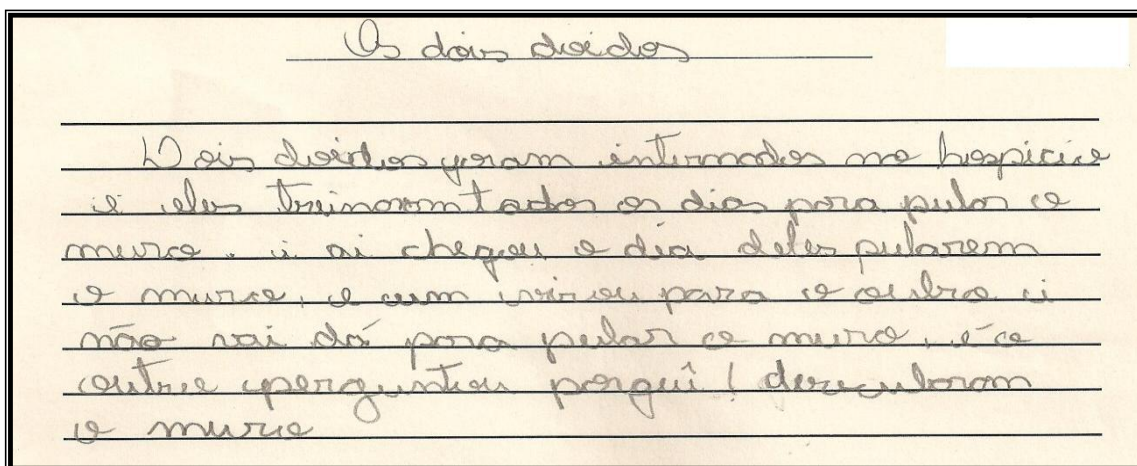 Os dois doidos
Dois doidos foram internados no hospicio
e eles treinaram todos os dias para pular o
muro. e ai chegou o dia deles pularem
o muro, e um virou para o outro e
não vai dá para pular o muro, e o
outro perguntou porquê! derrubaram
o muro